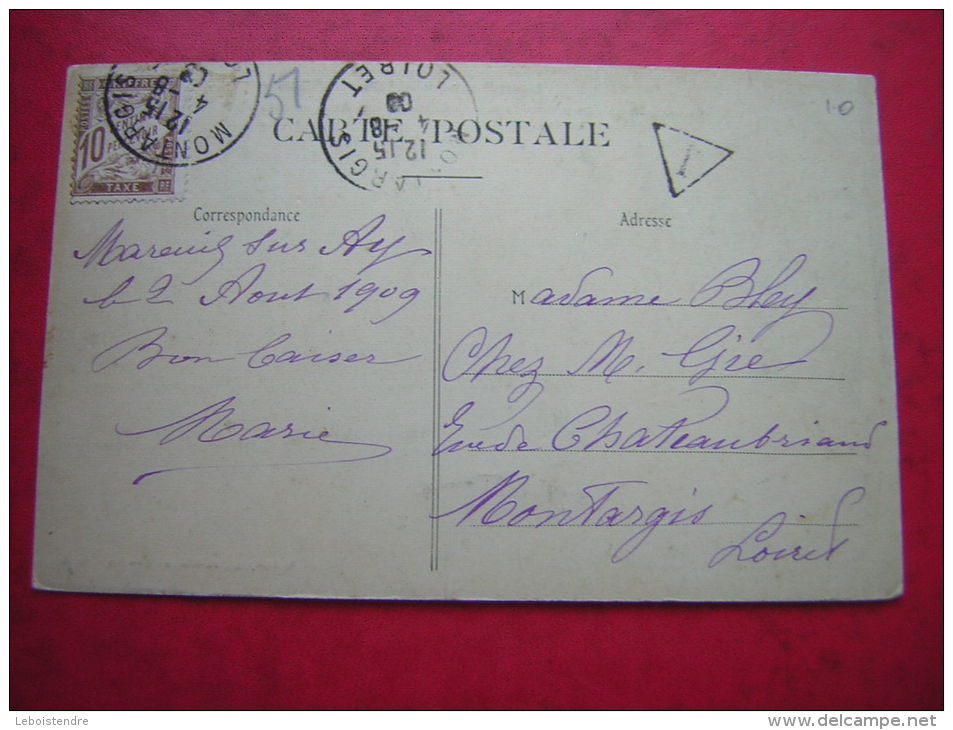 CARTE POSTALE
10
TAXE
MONTARGIS
LOIRET
12 15
4 - 8
09
51
10
T
Correspondance
Adresse
Mareuil sur Ay
le 2 Aout 1909
Bon Baiser
Marie
Madame Bley
Chez M. Gré
Rue de Chateaubriand
Montargis
Loiret
Leboistendre
www.delcampe.net